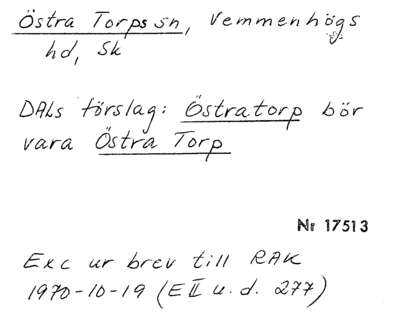 Östra Torps sn, Vemmenhögs
hd, Sk
DALs förslag: Östratorp bör
vara Östra Torp
Nr 17513
Exc ur brev till RAK
1970-10-19 (E II u. d. 277)